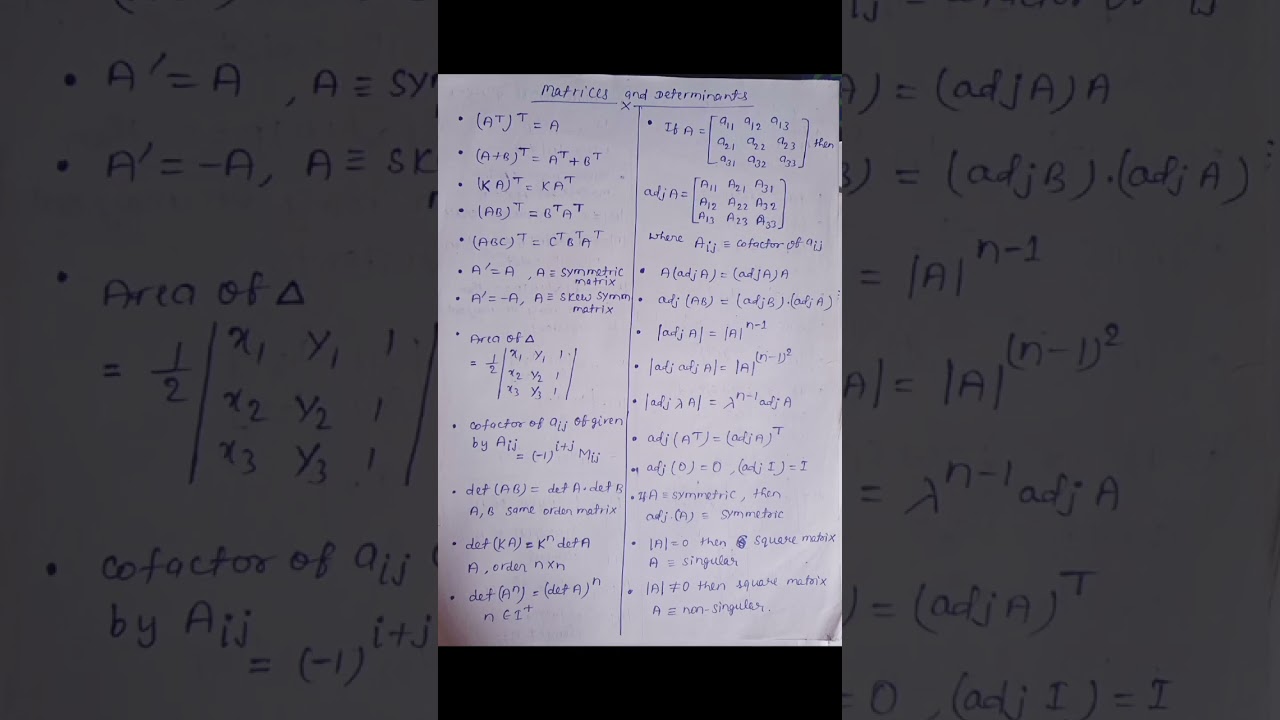 Matrices and Determinants
• (Aᵀ)ᵀ = A
• (A+B)ᵀ = Aᵀ + Bᵀ
• (KA)ᵀ = KAᵀ
• (AB)ᵀ = BᵀAᵀ
• (ABC)ᵀ = CᵀBᵀAᵀ
• A′ = A , A ≡ symmetric
matrix
• A′ = -A, A ≡ skew symm
matrix
• Area of Δ
= 1/2 | x₁ y₁ 1 |
| x₂ y₂ 1 |
| x₃ y₃ 1 |
• cofactor of aᵢⱼ of given
by Aᵢⱼ
= (-1)^(i+j) Mᵢⱼ
• def (AB) = def A · def B
A, B same order matrix
• def (KA) = Kⁿ def A
A, order n×n
• def (Aⁿ) = (def A)ⁿ
n ∈ I⁺
• If A = [ a₁₁ a₁₂ a₁₃ ] then
[ a₂₁ a₂₂ a₂₃ ]
[ a₃₁ a₃₂ a₃₃ ]
adj A = [ A₁₁ A₂₁ A₃₁ ]
[ A₁₂ A₂₂ A₃₂ ]
[ A₁₃ A₂₃ A₃₃ ]
where Aᵢⱼ ≡ cofactor of aᵢⱼ
• A(adj A) = (adj A) A
• adj (AB) = (adj B)·(adj A)
• |adj A| = |A|^(n-1)
• |adj adj A| = |A|^((n-1)²)
• |adj λA| = λ^(n-1) adj A
• adj (Aᵀ) = (adj A)ᵀ
• adj (0) = 0 , (adj I) = I
• If A ≡ symmetric, then
adj.(A) ≡ symmetric
• |A| = 0 then square matrix
A ≡ singular
• |A| ≠ 0 then square matrix
A ≡ non-singular.